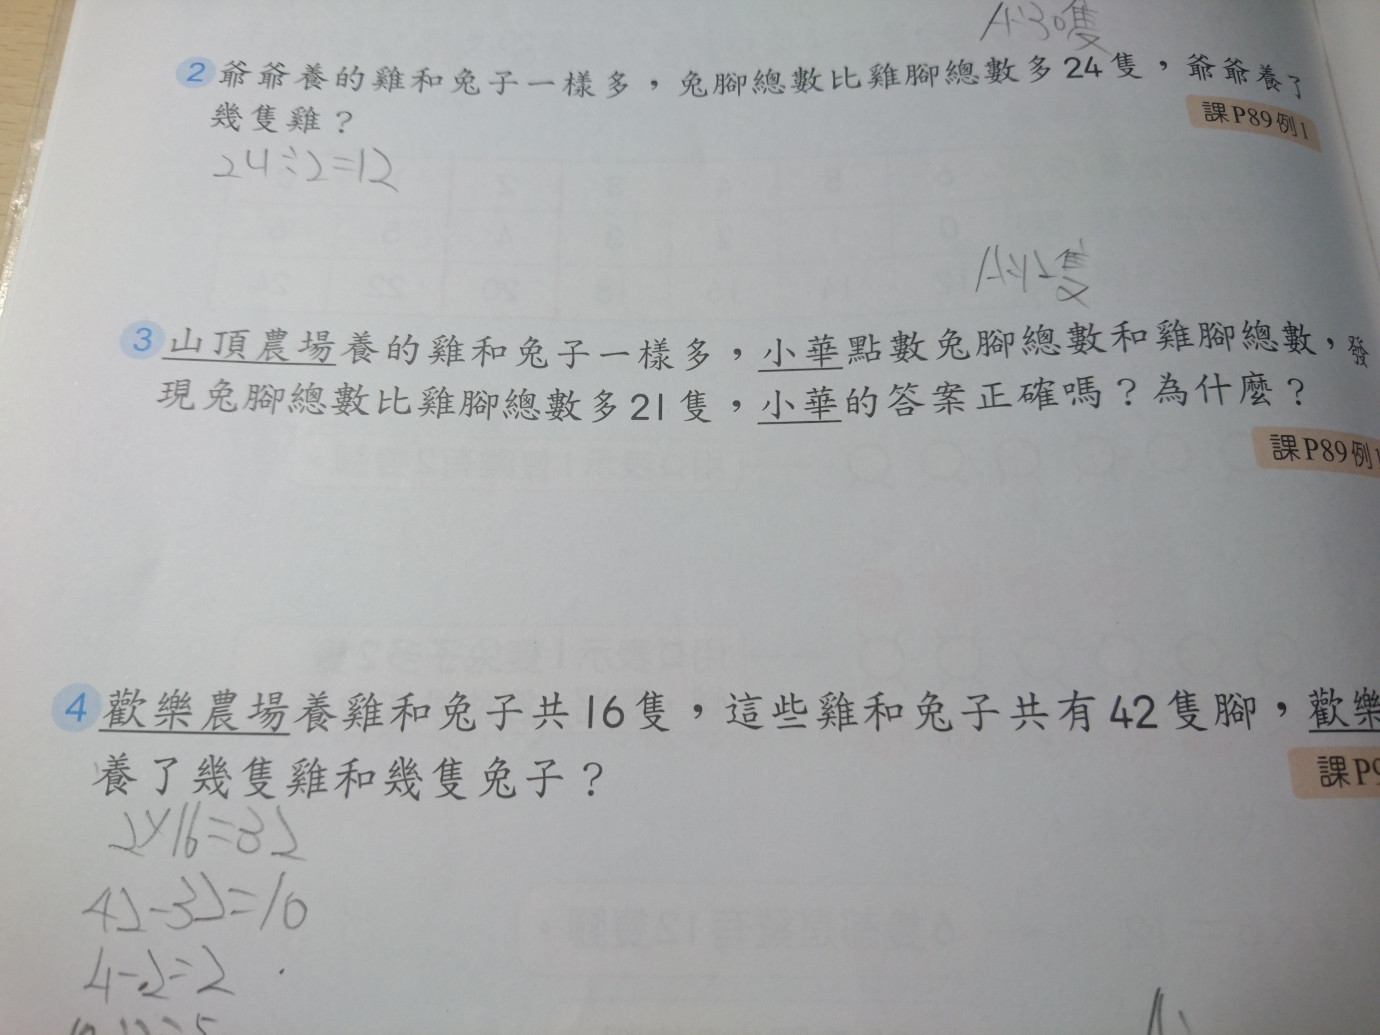 A:30隻
2 爺爺養的雞和兔子一樣多，兔腳總數比雞腳總數多24隻，爺爺養了
幾隻雞？
課P89例1
24÷2=12
A:12隻
3 山頂農場養的雞和兔子一樣多，小華點數兔腳總數和雞腳總數，發
現兔腳總數比雞腳總數多21隻，小華的答案正確嗎？為什麼？
課P89例1
4 歡樂農場養雞和兔子共16隻，這些雞和兔子共有42隻腳，歡樂
養了幾隻雞和幾隻兔子？
課P9
2×16=32
42-32=10
4-2=2